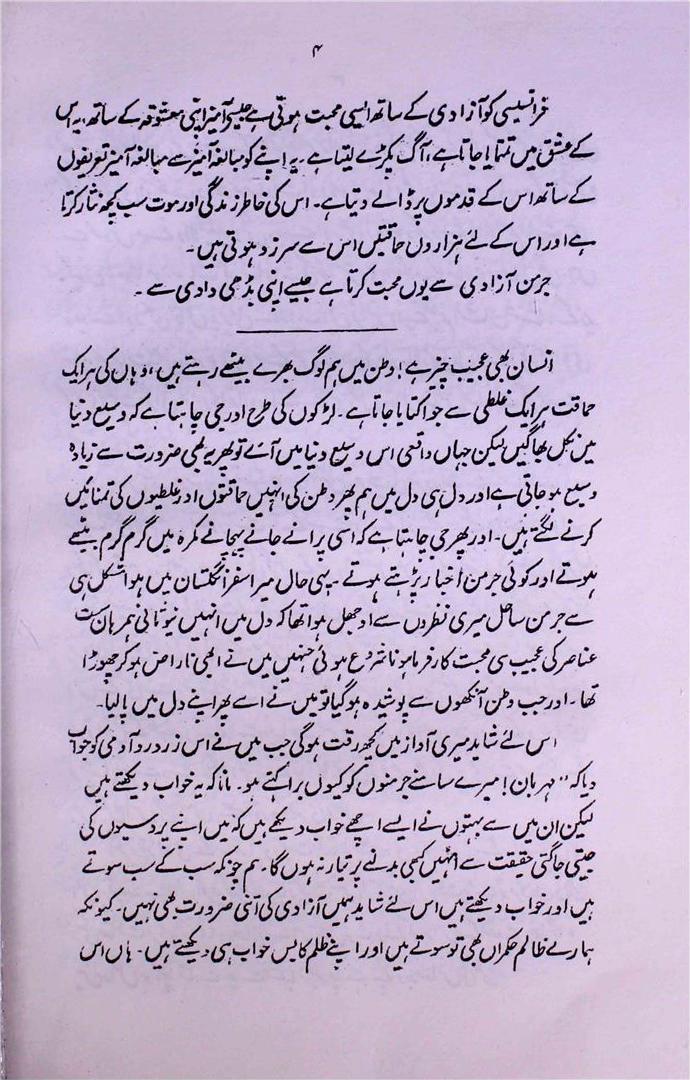 ۴
فرانسیسی کو آزادی کے ساتھ ایسی محبت ہوتی ہے جیسی آمیز اپنی معشوقہ کے ساتھ، یہ اس
کے عشق میں تمتمایا جاتا ہے، آگ پکڑے لیتا ہے۔ یہ اپنے کو مبالغہ آمیز سے مبالغہ آمیز تعریفوں
کے ساتھ اس کے قدموں پر ڈالے دیتا ہے۔ اس کی خاطر زندگی اور موت سب کچھ نثار کرتا
ہے اور اس کے لئے ہزاروں حماقتیں اس سے سرزد ہوتی ہیں۔
جرمن آزادی سے یوں محبت کرتا ہے جیسے اپنی بڈھی دادی سے۔
انسان بھی عجیب چیز ہے! وطن میں ہم لوگ بھرے بیٹھے رہتے ہیں، وہاں کی ہر ایک
حماقت ہر ایک غلطی سے جو اکتایا جاتا ہے۔ لڑکوں کی طرح اور جی چاہتا ہے کہ وسیع دنیا
میں نکل بھاگیں لیکن جہاں واقعی اس وسیع دنیا میں آئے تو پھر یہ بھی ضرورت سے زیادہ
وسیع ہو جاتی ہے اور دل ہی دل میں ہم پھر وطن کی انہیں حماقتوں اور غلطیوں کی تمنائیں
کرنے لگتے ہیں۔ اور پھر جی چاہتا ہے کہ اسی پرانے جانے پہچانے کمرہ میں گرم گرم بیٹھے
ہوتے اور کوئی جرمن اخبار پڑھتے ہوتے۔ یہی حال میرا سفر انگلستان میں ہوا مشکل ہی
سے جرمن ساحل میری نظروں سے اوجھل ہوا تھا کہ دل میں انہیں ہست
عناصر کی عجیب سی محبت کارفرما ہونا شروع ہوئی جنہیں میں نے ابھی ناراض ہو کر چھوڑا
تھا۔ اور جب وطن آنکھوں سے پوشیدہ ہو گیا تو میں نے اسے پھر اپنے دل میں پا لیا۔
اس لئے شاید میری آواز میں کچھ رقت ہو گی جب میں نے اس زرد رو آدمی کو جواب
دیا کہ "مہربان! میرے سامنے جرمنوں کو کیوں برا کہتے ہو۔ مانا کہ یہ خواب دیکھتے ہیں
لیکن ان میں سے بہتوں نے ایسے اچھے خواب دیکھے ہیں کہ میں اپنے پردسیوں کی
جیتی جاگتی حقیقت سے انہیں کبھی بدلنے پر تیار نہ ہوں گا۔ ہم چونکہ سب کے سب سوتے
ہیں اور خواب دیکھتے ہیں اس لئے شاید ہمیں آزادی کی اتنی ضرورت بھی نہیں۔ کیونکہ
ہمارے ظالم حکمراں بھی تو سوتے ہیں اور اپنے ظلم کا بس خواب ہی دیکھتے ہیں۔ ہاں اس